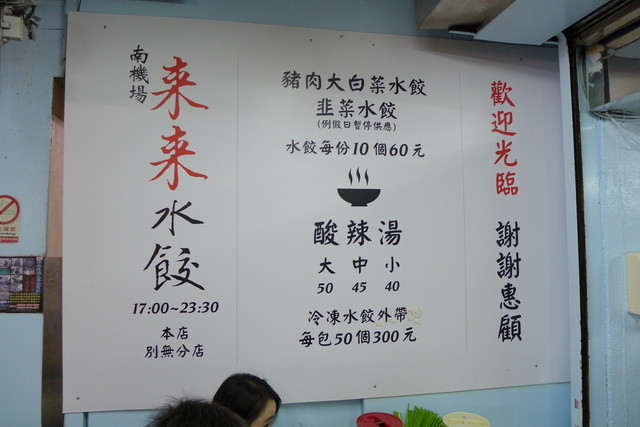 南機場
来来水餃
17:00~23:30
本店
別無分店
豬肉大白菜水餃
韭菜水餃
(例假日暫停供應)
水餃每份10個60元
酸辣湯
大 中 小
50 45 40
冷凍水餃外帶
每包50個300元
歡迎光臨 謝謝惠顧